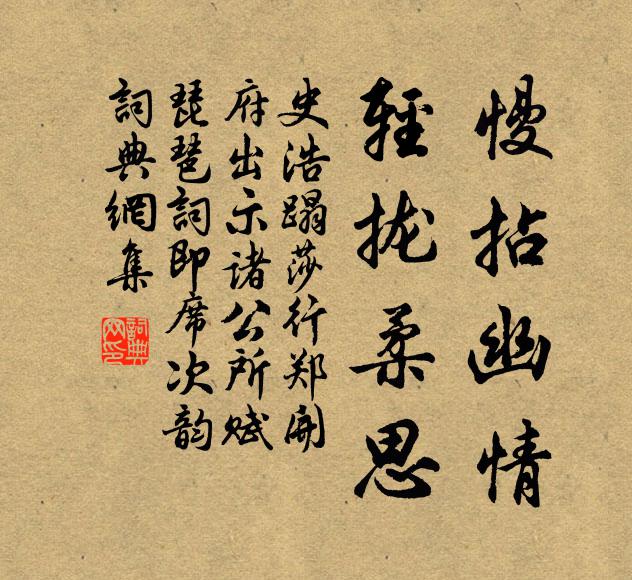 慢拈幽情
輕拢柔思
史浩蹋莎行郑開
府出示诸公所赋
琵琶詞即席次韵
詞典網集
詞典网印